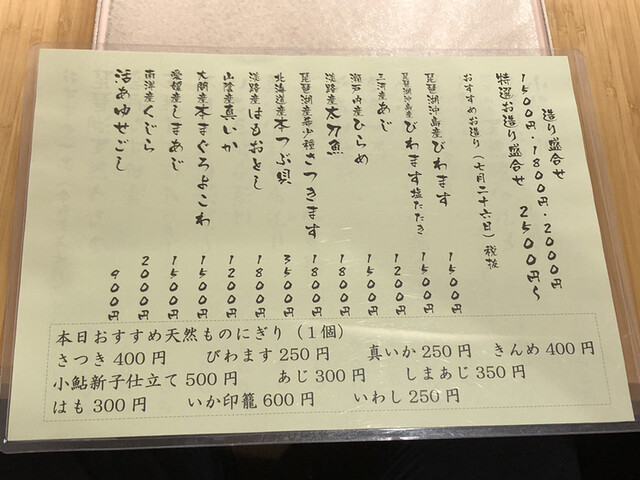 造り盛合せ
1500円・1800円・2000円
特選お造り盛合せ 2500円〜
おすすめお造り(七月二十六日)税抜
琵琶湖沖島産びわます 1500円
琵琶湖沖島産びわます塩たたき 1200円
三河産あじ 1500円
瀬戸内産ひらめ 1800円
淡路産太刀魚 1800円
琵琶湖産希少種さつきます 1800円
北海道産本つぶ貝 3500円
淡路産はもおとし 1800円
山陰産真いか 1200円
大間産本まぐろよこわ 1500円
愛媛産しまあじ 1500円
南洋産くじら 2000円
活あゆせごし 900円
本日おすすめ天然ものにぎり(1個)
さつき400円 びわます250円 真いか250円 きんめ400円
小鮎新子仕立て500円 あじ300円 しまあじ350円
はも300円 いか印籠600円 いわし250円